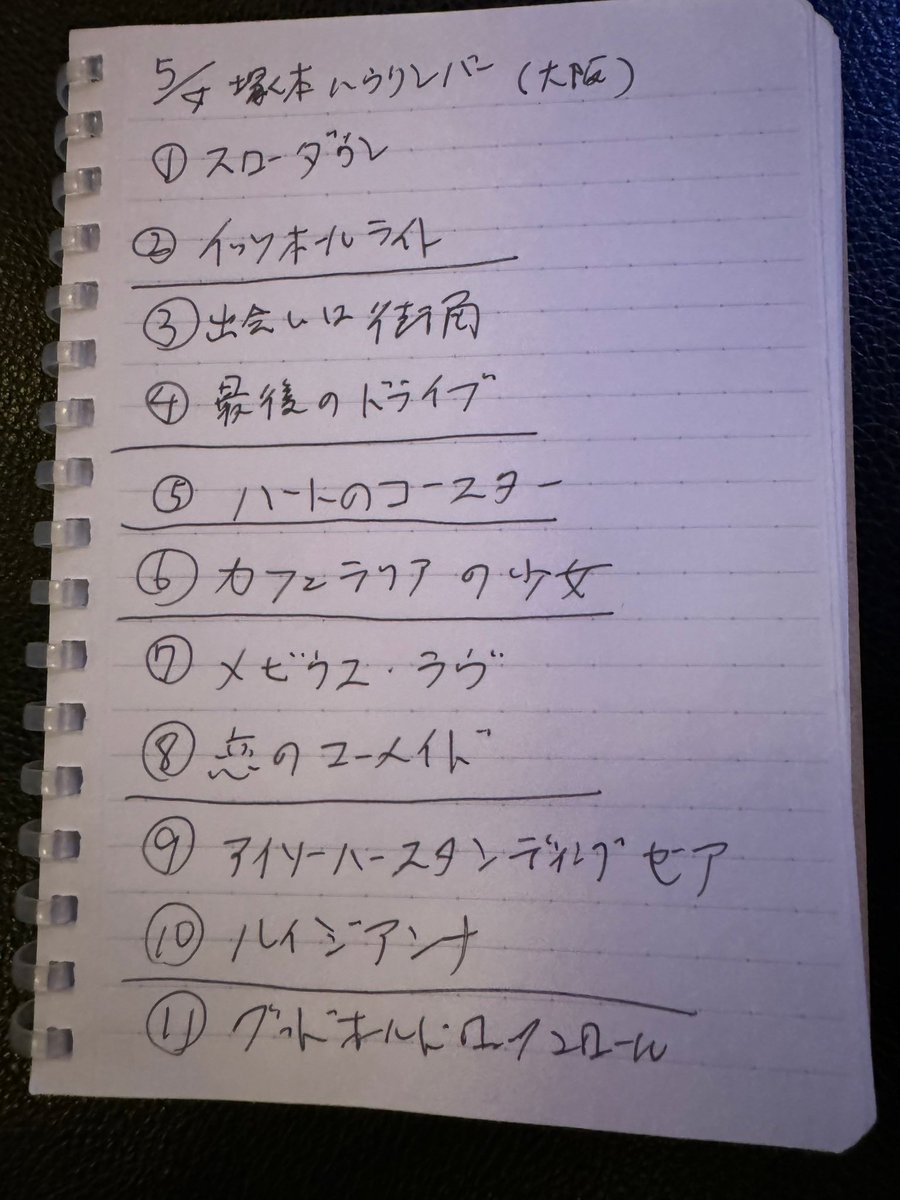 5/4 塚本ハウリンバー (大阪)
① スローダウン
② イッツオールライト
③ 出会いは街角
④ 最後のドライブ
⑤ ハートのコースター
⑥ カフェテリアの少女
⑦ メビウス・ラヴ
⑧ 恋のマーメイド
⑨ アイソーハースタンディングゼア
⑩ ルイジアンナ
⑪ グッドオールド・ロックンロール